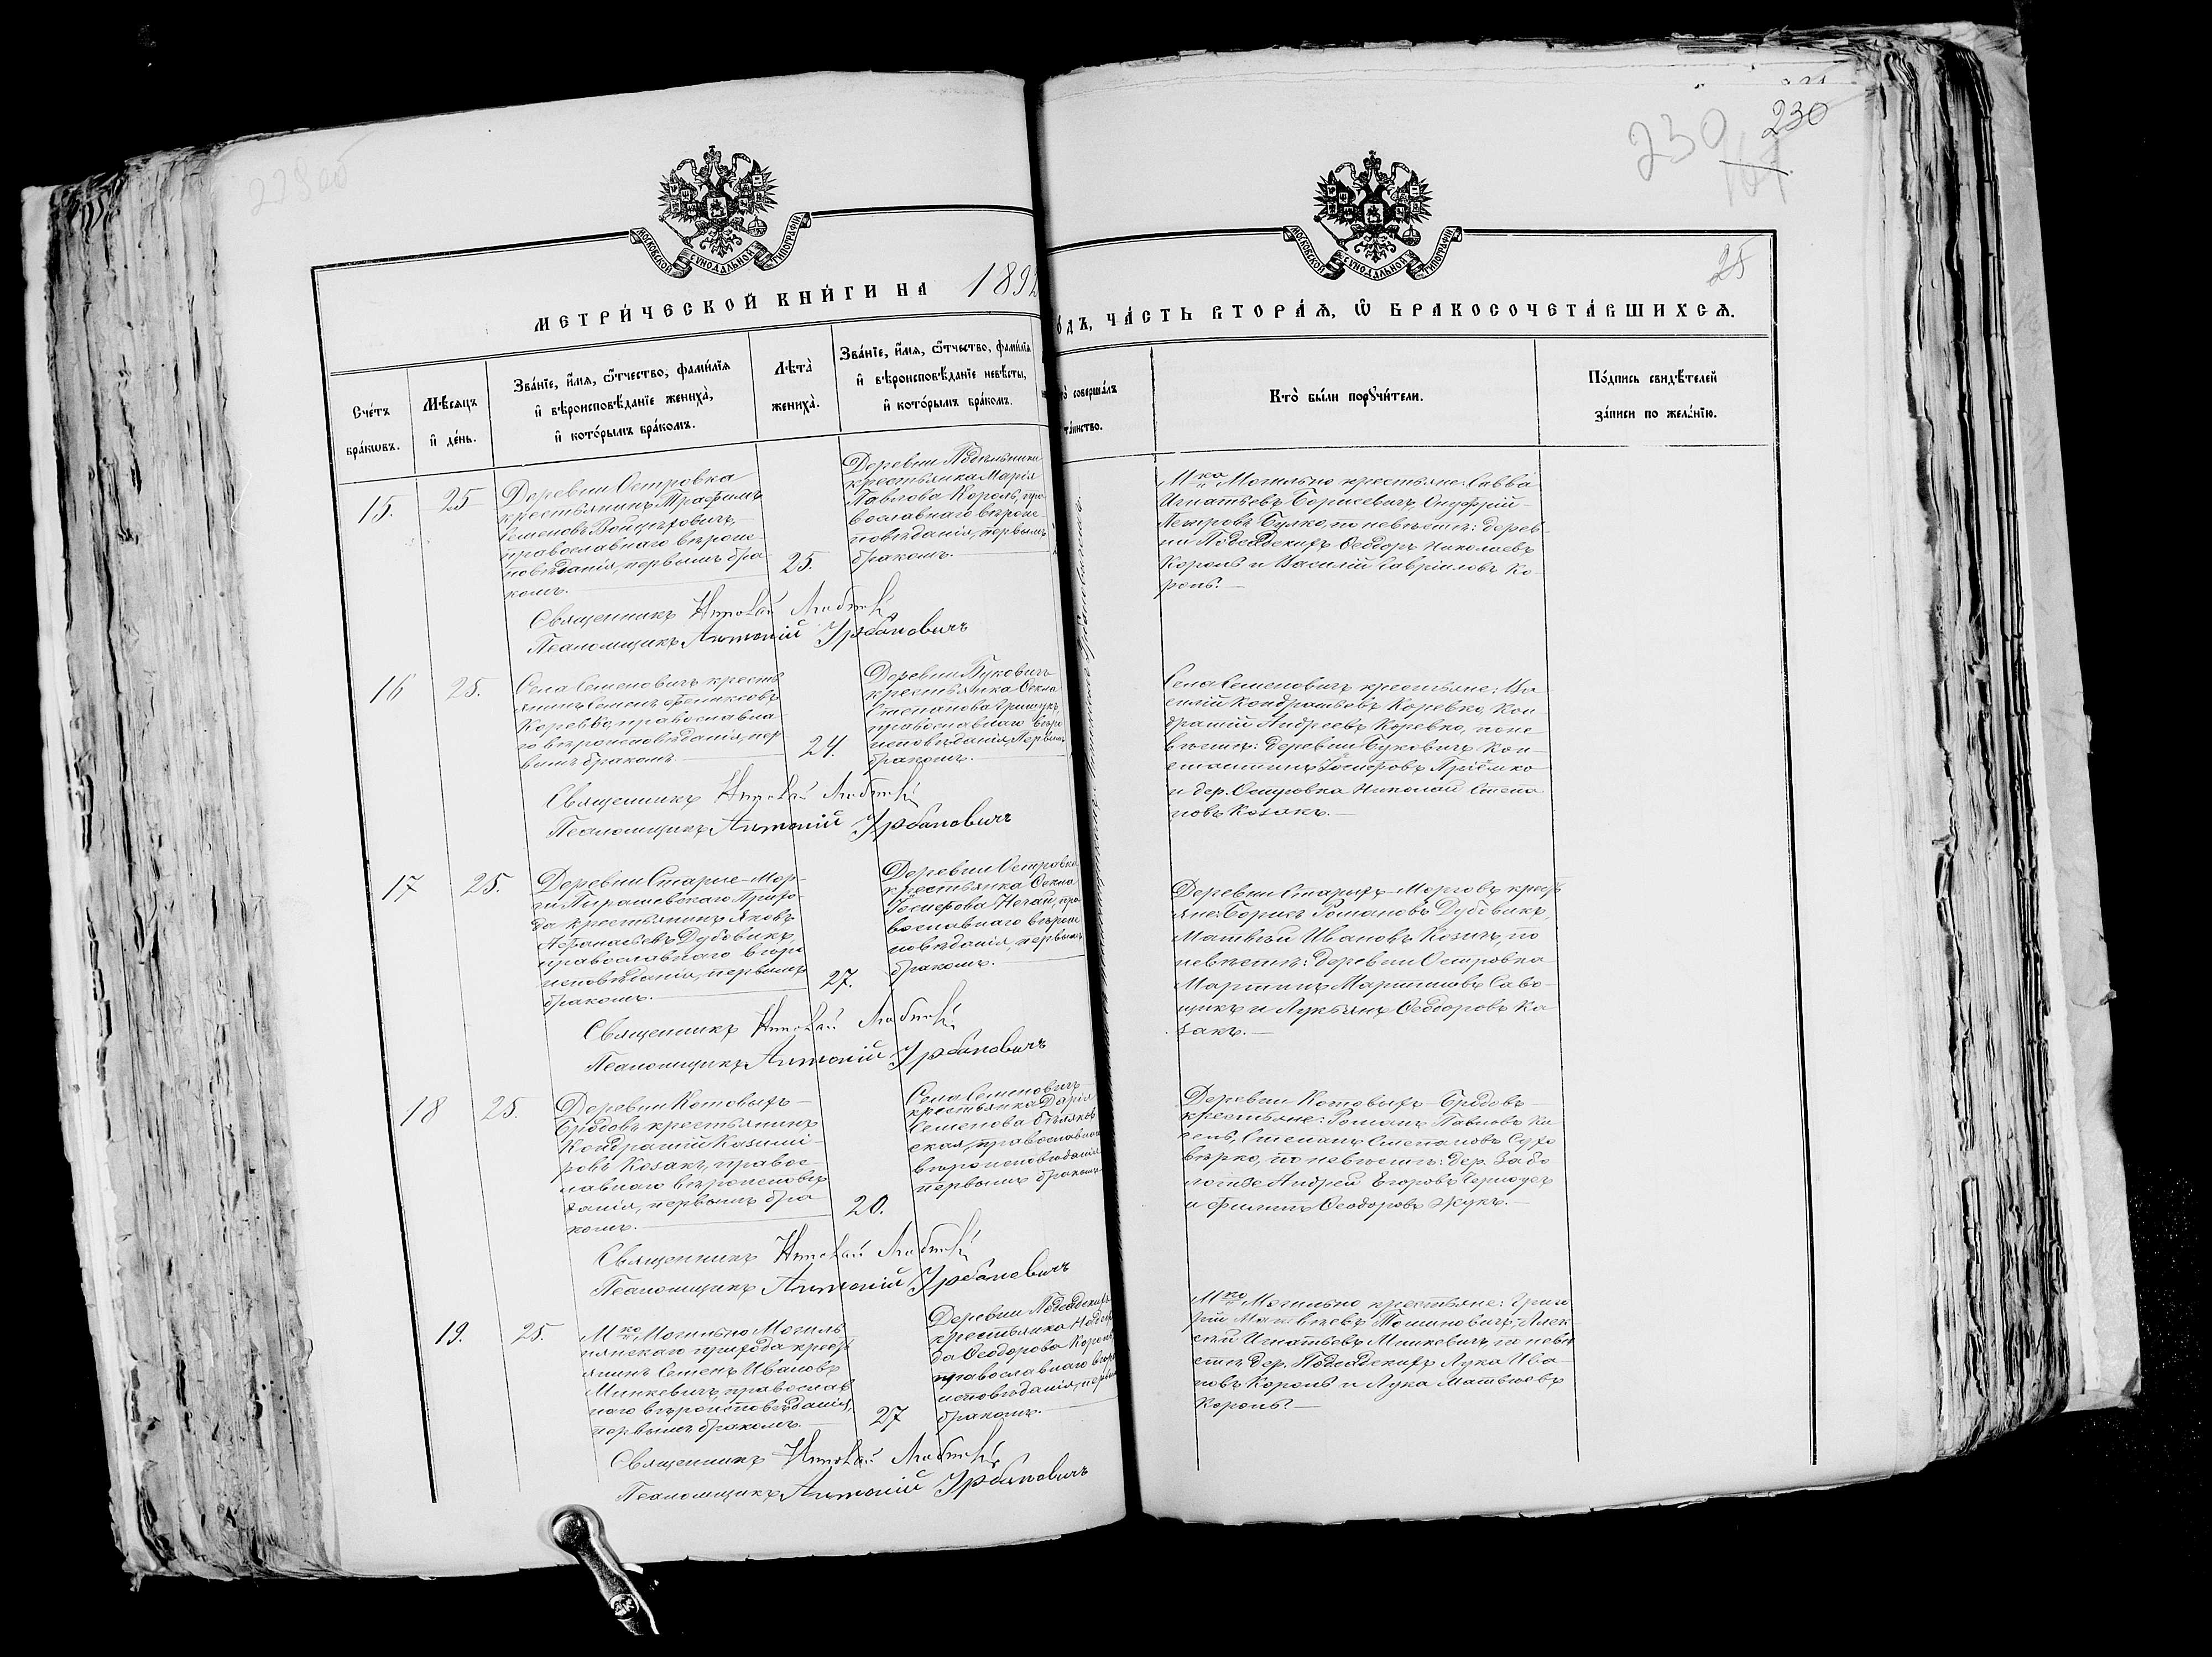 230
230
167
25
МОСКОВСКОЙ СѴНОДАЛЬНОЙ ТИПОГРАФІИ
МОСКОВСКОЙ СѴНОДАЛЬНОЙ ТИПОГРАФІИ
МЕТРИ́ЧЕСКОЙ КНИ́ГИ НА 1892
О́ДЪ, ЧА́СТЬ ВТОРА́Ѧ, Ѽ БРАКОСОЧЕТА́ВШИХСѦ.
Сче́тъ
бра́кѡвъ.
Мѣ́сяцъ
и҆ де́нь.
Зва́нїе, и҆́мѧ, ѻ҆́тчество, фами́лїѧ
и҆ вѣроисповѣ́данїе жениха̀,
и҆ кото́рымъ бра́комъ.
Лѣта̀
жениха̀.
Зва́нїе, и҆́мѧ, ѻ҆́тчество, фами́лїѧ
и҆ вѣроисповѣ́данїе невѣ́сты,
и҆ кото́рымъ бра́комъ.
то̀ соверша́лъ
та́инство.
Кто̀ бы́ли порꙋчи́тели.
По́дпись свидѣ́телей
за́писи по жела́нїю.
15.
25
Деревни Островка
крестьянинъ Трофимъ
Семеновъ Войцѣховичъ,
православнаго вѣроис-
повѣданія, первымъ бра-
комъ.
25.
Деревни
крестьянка Марія
Павлова Король, пра
вославнаго вѣроис-
повѣданія, первымъ
бракомъ.
Мко Могильно крестьяне: Савва
Игнатьевъ Борисевичъ, Онуфрій
Петровъ Булко, по невѣстѣ: дерев-
ни Подсадскихъ Ѳеодоръ Николаевъ
Король и Василій Гавріиловъ Ко-
роль.
Священникъ
Псаломщикъ Антоній Урбановичъ
16
25.
Села Семеновичъ кресть
янинъ Семенъ Феликсовъ
Коревко, православна-
го вѣроисповѣданія, пер
вымъ бракомъ.
24.
Деревни Буковичъ
крестьянка Ѳекла
Степанова Гришукъ,
православнаго вѣро
исповѣданія, первымъ
бракомъ.
Села Семеновичъ крестьяне: Ва
силій Кондратьевъ Коревко, Кон-
дратій Андреевъ Коревко, по не-
вѣстѣ: деревни Буковичъ Кон-
стантинъ Іосифовъ Пріёмко
и дер. Островка Николай Степа
новъ Козакъ.
Священникъ
Псаломщикъ Антоній Урбановичъ
17
25.
Деревни Старые-Мор-
ги прихо-
да крестьянинъ Яковъ
Аѳанасьевъ Дубовикъ,
православнаго вѣро
исповѣданія, первымъ
бракомъ.
27.
Деревни Островка
крестьянка Ѳекла
Іосифова Нечай, пра
вославнаго вѣроис
повѣданія, первымъ
бракомъ.
Деревни Старыхъ-Морговъ кресть
яне: Борисъ Романовъ Дубовикъ,
Матвѣй Ивановъ Козичъ, по
невѣстѣ: деревни Островка
Мартинъ Мартиновъ Саво-
щикъ и Лукьянъ Ѳеодоровъ Ка
закъ.
Священникъ
Псаломщикъ Антоній Урбановичъ
18
25.
Деревни Котовыхъ-
Бродовъ крестьянинъ
Кондратій Казимі-
ровъ Козакъ, правос-
лавнаго вѣроисповѣ
данія, первымъ бра
комъ.
20.
Села Семеновичъ
крестьянка Дарія
Семенова Бѣляков
ская, православнаго
вѣроисповѣданія
первымъ бракомъ
Деревни Котовыхъ Бродовъ
крестьяне: Романъ Павловъ Ки
сель, Степанъ Степановъ Сухо
вѣрко, по невѣстѣ: дер. Забо
лотье Андрей Егоровъ
и Филипъ Ѳеодоровъ Жукъ.
Священникъ
Псаломщикъ Антоній Урбановичъ
19.
25.
Мко Могильно Могиль
нянскаго прихода кресть
янинъ Семенъ Ивановъ
Минкевичъ, православ
наго вѣроисповѣданія,
первымъ бракомъ.
27
Деревни Подсадскихъ
крестьянка Надеж
да Ѳеодорова Король,
православнаго вѣро
исповѣданія, первымъ
бракомъ.
Мко Могильно крестьяне: Григо
рій Матвѣевъ Тошиновичъ, Алек
сѣй Игнатьевъ Минкевичъ, по невѣ
стѣ дер. Подсадскихъ Лука Ива
новъ Король и Лука Матвѣевъ
Король.
Священникъ
Псаломщикъ Антоній Урбановичъ